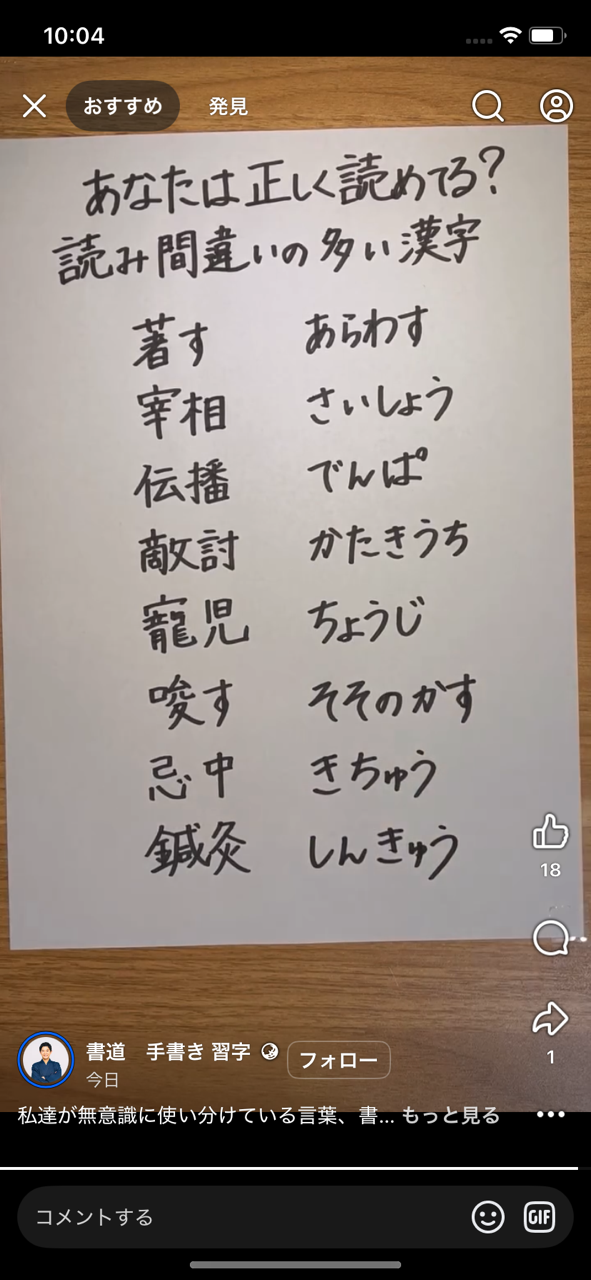 10:04
おすすめ 発見
あなたは正しく読めてる?
読み間違いの多い漢字
著す あらわす
宰相 さいしょう
伝播 でんぱ
敵討 かたきうち
寵児 ちょうじ
唆す そそのかす
忌中 きちゅう
鍼灸 しんきゅう
18
1
書道 手書き 習字
フォロー
今日
私達が無意識に使い分けている言葉、書... もっと見る
コメントする
GIF